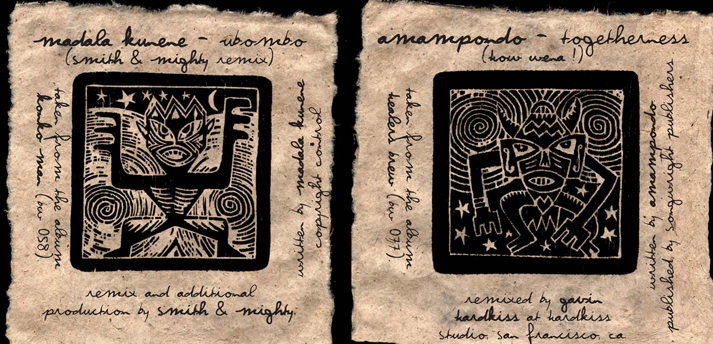 madala kunene - ubombo
(smith & mighty remix)
taken from the album
konko man (bw 058)
written by madala kunene
copyright control
remix and additional
production by smith & mighty.
amampondo - togetherness
(how wena!)
taken from the album
written by amampondo
published by songwright publishers
remixed by gavin
hardkiss at hardkiss
studio. san francisco. ca